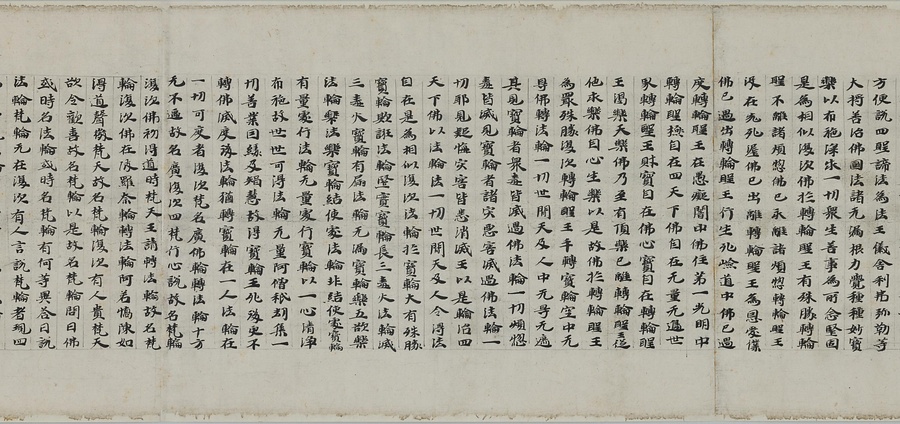 方便說四聖諦法為法王儀舍利弗弥勒等
大將善治佛國法諸无漏根力覺種種妙寶
樂以布施深求一切眾生善事為可念堅固
是為相似復次佛於轉輪聖王有殊勝轉輪
聖王不離諸煩惱佛已永離諸煩惱轉輪王
沒在老死泥佛已出離轉輪聖王為恩愛僕
佛已過出轉輪聖王行生死嶮道中佛已過
度轉輪聖王在愚癡闇中佛住第一光明中
轉輪聖極自在四天下佛自在无量无邊世
界轉輪聖王財寶自在佛心寶自在轉輪聖
王渴樂天樂佛乃至有頂樂已離轉輪聖從
他求樂佛自心生樂以是故佛於轉輪聖王
為冣殊勝復次轉輪聖王手轉寶輪空中无
㝵佛轉法輪一切世間天及人中无㝵无遮
其見寶輪者眾毒皆滅遇佛法輪一切煩惱
毒皆滅見寶輪者諸灾惡害滅遇佛法輪一
切耶見起悔灾害皆悉消滅王以是輪治四
天下佛以法輪法一切世間天及人令得法
自在是為相似復次法輪於寶輪大有殊勝
寶輪欺誑法輪堅實寶輪長三毒火法輪滅
三毒火寶輪有漏法輪无漏寶輪樂五欲樂
法輪樂法樂寶輪結使處法輪非結使處寶輪
有量處行法輪无量處行寶輪以一心清淨
布施故世世可得法輪无量阿僧秖劫集一
切善業因緣及智慧故得寶輪王死後更不
轉佛滅度後法輪猶轉寶輪在一人法輪在
一切可度者復次梵名廣佛輪轉法輪十方
无不遍故名廣復次四梵行心說故名梵輪
復次佛初得道時梵天王請轉法輪故名梵
輪復次佛在波羅奈輪轉法輪阿若憍陳如
得道聲徹梵天故名梵輪復次有人貴梵天
欲令歡喜故名梵輪以是故名梵輪問曰佛
或時名法輪或時名梵輪有何等異答曰說
法輪梵輪无在復次有人言說梵輪者現四